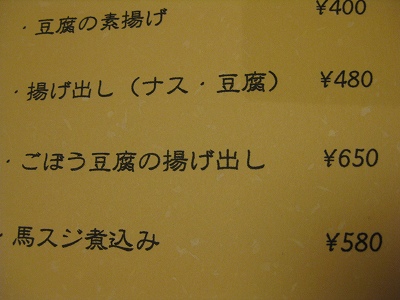 ・豆腐の素揚げ ¥400
・揚げ出し（ナス・豆腐） ¥480
・ごぼう豆腐の揚げ出し ¥650
・馬スジ煮込み ¥580